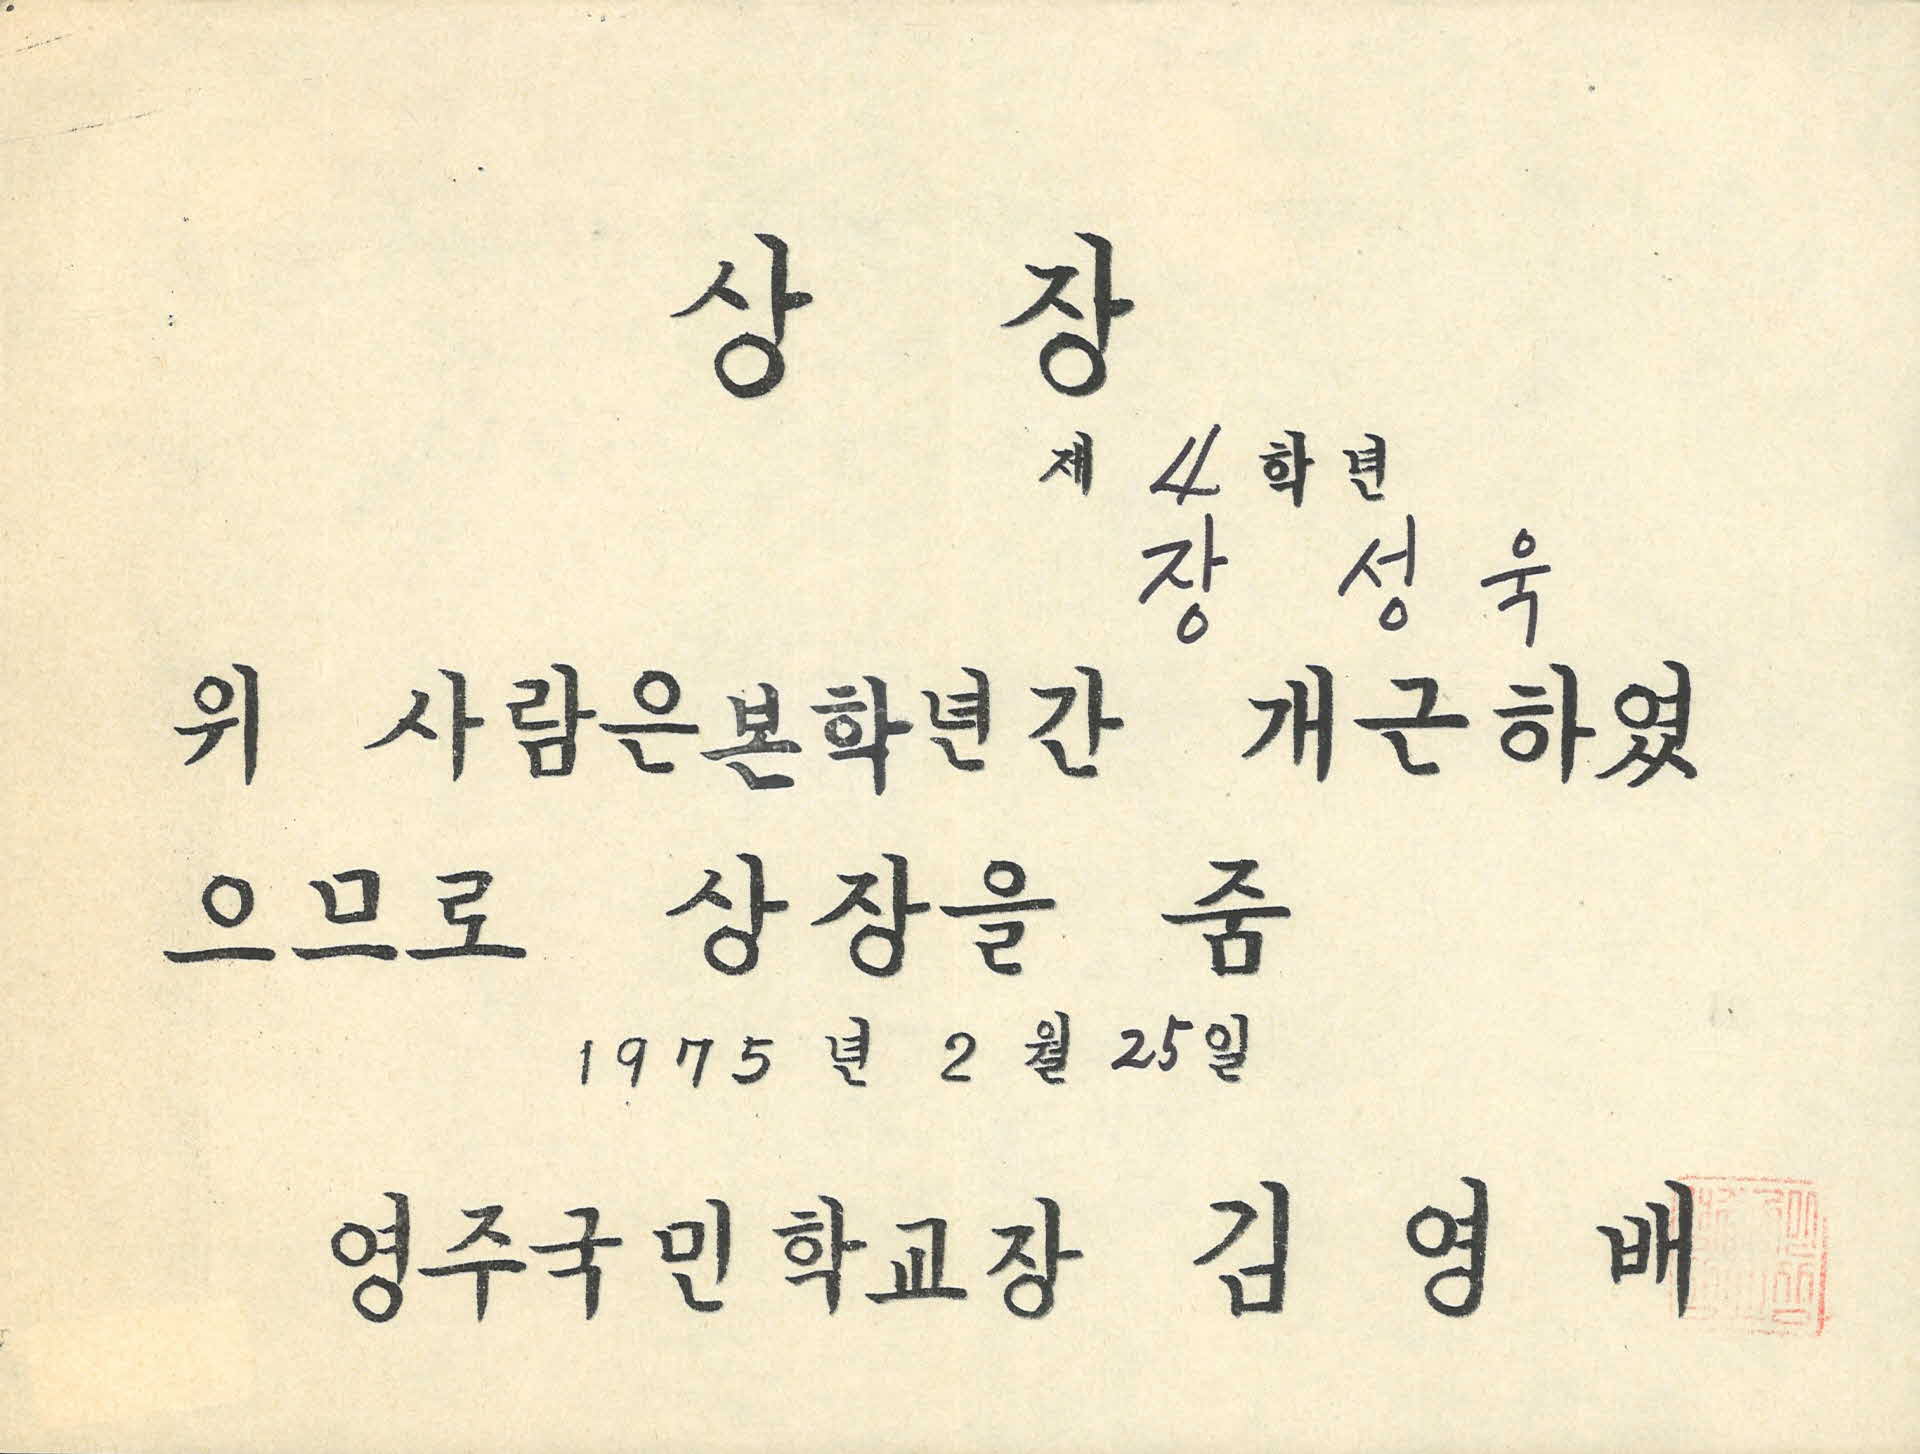 상 장
제 4 학년
장 성 욱
위 사람은 본학년간 개근하였
으므로 상장을 줌
1975 년 2 월 25일
영주국민학교장 김 영 배